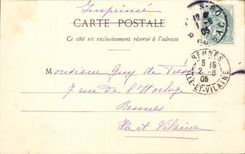 Imprimé
CARTE POSTALE
Ce côté est exclusivement réservé à l'adresse
Monsieur Guy de
rue de l'Horloge
Rennes
Ille et Vilaine
RENNES
5 15
2 -8
05
ILLE-ET-VILAINE